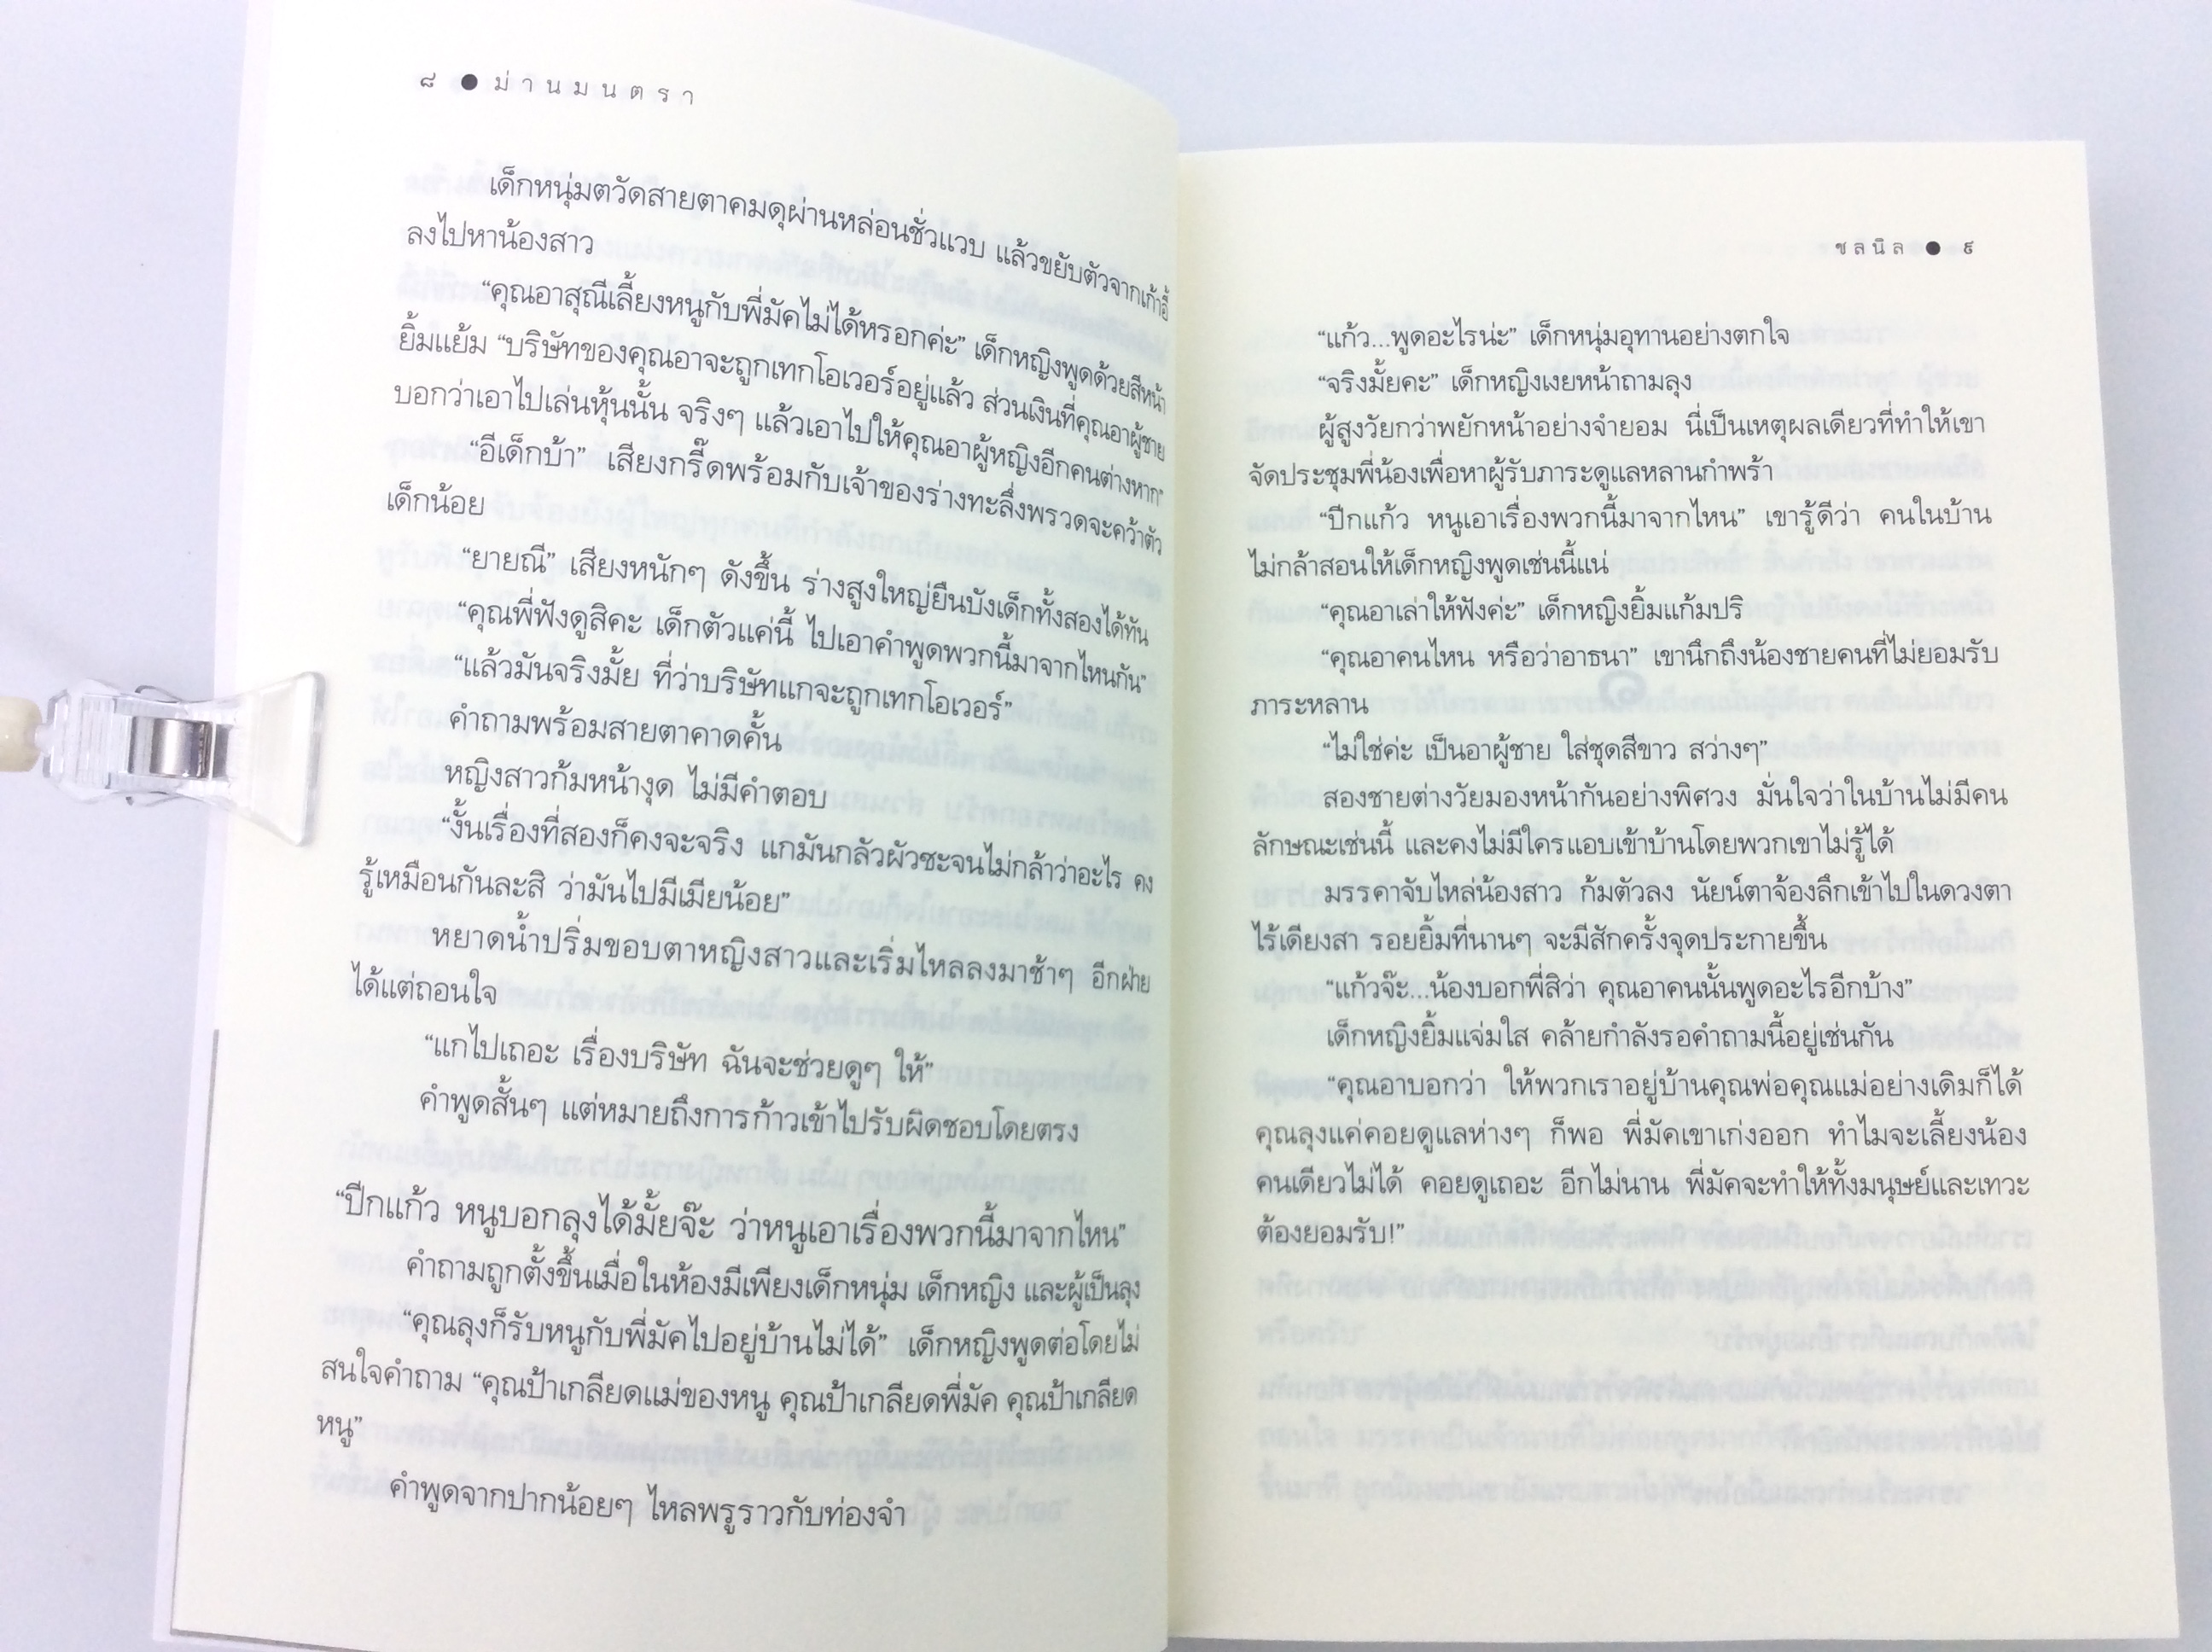 ๘ ● ม่านมนตรา
เด็กหนุ่มตวัดสายตาคมดุผ่านหล่อนชั่วแวบ แล้วขยับตัวจากเก้าอี้
ลงไปหาน้องสาว
“คุณอาสุณีเลี้ยงหนูกับพี่มัคไม่ได้หรอกค่ะ” เด็กหญิงพูดด้วยสีหน้า
ยิ้มแย้ม “บริษัทของคุณอาจะถูกเทกโอเวอร์อยู่แล้ว ส่วนเงินที่คุณอาผู้ชาย
บอกว่าเอาไปเล่นหุ้นนั้น จริงๆ แล้วเอาไปให้คุณอาผู้หญิงอีกคนต่างหาก”
“อีเด็กบ้า” เสียงกรี๊ดพร้อมกับเจ้าของร่างทะลึ่งพรวดจะคว้าตัว
เด็กน้อย
“ยายณี” เสียงหนักๆ ดังขึ้น ร่างสูงใหญ่ยืนบังเด็กทั้งสองได้ทัน
“คุณพี่ฟังดูสิคะ เด็กตัวแค่นี้ ไปเอาคำพูดพวกนี้มาจากไหนกัน”
“แล้วมันจริงมั้ย ที่ว่าบริษัทแกจะถูกเทกโอเวอร์”
คำถามพร้อมสายตาคาดคั้น
หญิงสาวก้มหน้างุด ไม่มีคำตอบ
“งั้นเรื่องที่สองก็คงจะจริง แกมันกลัวผัวซะจนไม่กล้าว่าอะไร คง
รู้เหมือนกันละสิ ว่ามันไปมีเมียน้อย”
หยาดน้ำปริ่มขอบตาหญิงสาวและเริ่มไหลลงมาช้าๆ อีกฝ่าย
ได้แต่ถอนใจ
“แกไปเถอะ เรื่องบริษัท ฉันจะช่วยดูๆ ให้”
คำพูดสั้นๆ แต่หมายถึงการก้าวเข้าไปรับผิดชอบโดยตรง
“ปีกแก้ว หนูบอกลุงได้มั้ยจ๊ะ ว่าหนูเอาเรื่องพวกนี้มาจากไหน”
คำถามถูกตั้งขึ้นเมื่อในห้องมีเพียงเด็กหนุ่ม เด็กหญิง และผู้เป็นลุง
“คุณลุงก็รับหนูกับพี่มัคไปอยู่บ้านไม่ได้” เด็กหญิงพูดต่อโดยไม่
สนใจคำถาม “คุณป้าเกลียดแม่ของหนู คุณป้าเกลียดพี่มัค คุณป้าเกลียด
หนู”
คำพูดจากปากน้อยๆ ไหลพรูราวกับท่องจำ
ชลนิล ● ๙
“แก้ว...พูดอะไรน่ะ” เด็กหนุ่มอุทานอย่างตกใจ
“จริงมั้ยคะ” เด็กหญิงเงยหน้าถามลุง
ผู้สูงวัยกว่าพยักหน้าอย่างจำยอม นี่เป็นเหตุผลเดียวที่ทำให้เขา
จัดประชุมพี่น้องเพื่อหาผู้รับภาระดูแลหลานกำพร้า
“ปีกแก้ว หนูเอาเรื่องพวกนี้มาจากไหน” เขารู้ดีว่า คนในบ้าน
ไม่กล้าสอนให้เด็กหญิงพูดเช่นนี้แน่
“คุณอาเล่าให้ฟังค่ะ” เด็กหญิงยิ้มแก้มปริ
“คุณอาคนไหน หรือว่าอาธนา” เขานึกถึงน้องชายคนที่ไม่ยอมรับ
ภาระหลาน
“ไม่ใช่ค่ะ เป็นอาผู้ชาย ใส่ชุดสีขาว สว่างๆ”
สองชายต่างวัยมองหน้ากันอย่างพิศวง มั่นใจว่าในบ้านไม่มีคน
ลักษณะเช่นนี้ และคงไม่มีใครแอบเข้าบ้านโดยพวกเขาไม่รู้ได้
มรรคาจับไหล่น้องสาว ก้มตัวลง นัยน์ตาจ้องลึกเข้าไปในดวงตา
ไร้เดียงสา รอยยิ้มที่นานๆ จะมีสักครั้งจุดประกายขึ้น
“แก้วจ๊ะ...น้องบอกพี่สิว่า คุณอาคนนั้นพูดอะไรอีกบ้าง”
เด็กหญิงยิ้มแจ่มใส คล้ายกำลังรอคำถามนี้อยู่เช่นกัน
“คุณอาบอกว่า ให้พวกเราอยู่บ้านคุณพ่อคุณแม่อย่างเดิมก็ได้
คุณลุงแค่คอยดูแลห่างๆ ก็พอ พี่มัคเขาเก่งออก ทำไมจะเลี้ยงน้อง
คนเดียวไม่ได้ คอยดูเถอะ อีกไม่นาน พี่มัคจะทำให้ทั้งมนุษย์และเทวะ
ต้องยอมรับ!”